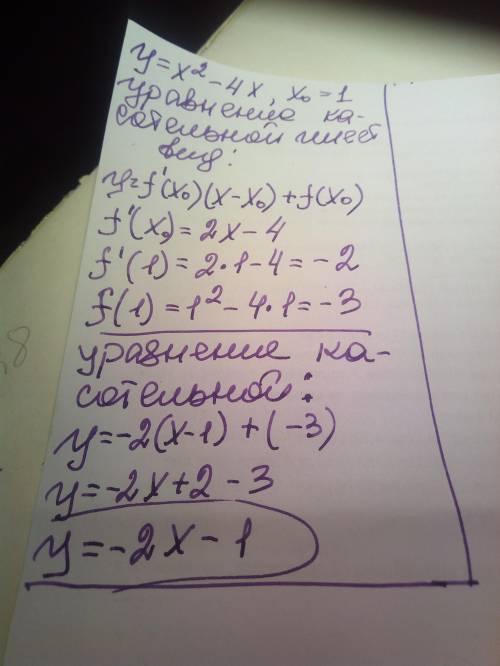 y = x² - 4x, x₀ = 1
уравнение ка-
сательной имеет
вид:
y = f'(x₀)(x - x₀) + f(x₀)
f'(x₀) = 2x - 4
f'(1) = 2·1 - 4 = -2
f(1) = 1² - 4·1 = -3
уравнение ка-
сательной:
y = -2(x-1) + (-3)
y = -2x + 2 - 3
y = -2x - 1